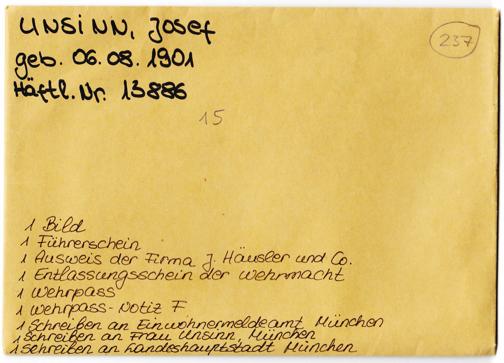 UNSINN, Josef
237
geb. 06.08.1901
Häftl. Nr. 13886
15
1 Bild
1 Führerschein
1 Ausweis der Firma J. Häusler und Co.
1 Entlassungsschein der Wehrmacht
1 Wehrpass
1 Wehrpass-Notiz F
1 Schreiben an Einwohnermeldeamt München
1 Schreiben an Frau Unsinn, München
1 Schreiben an Landeshauptstadt München